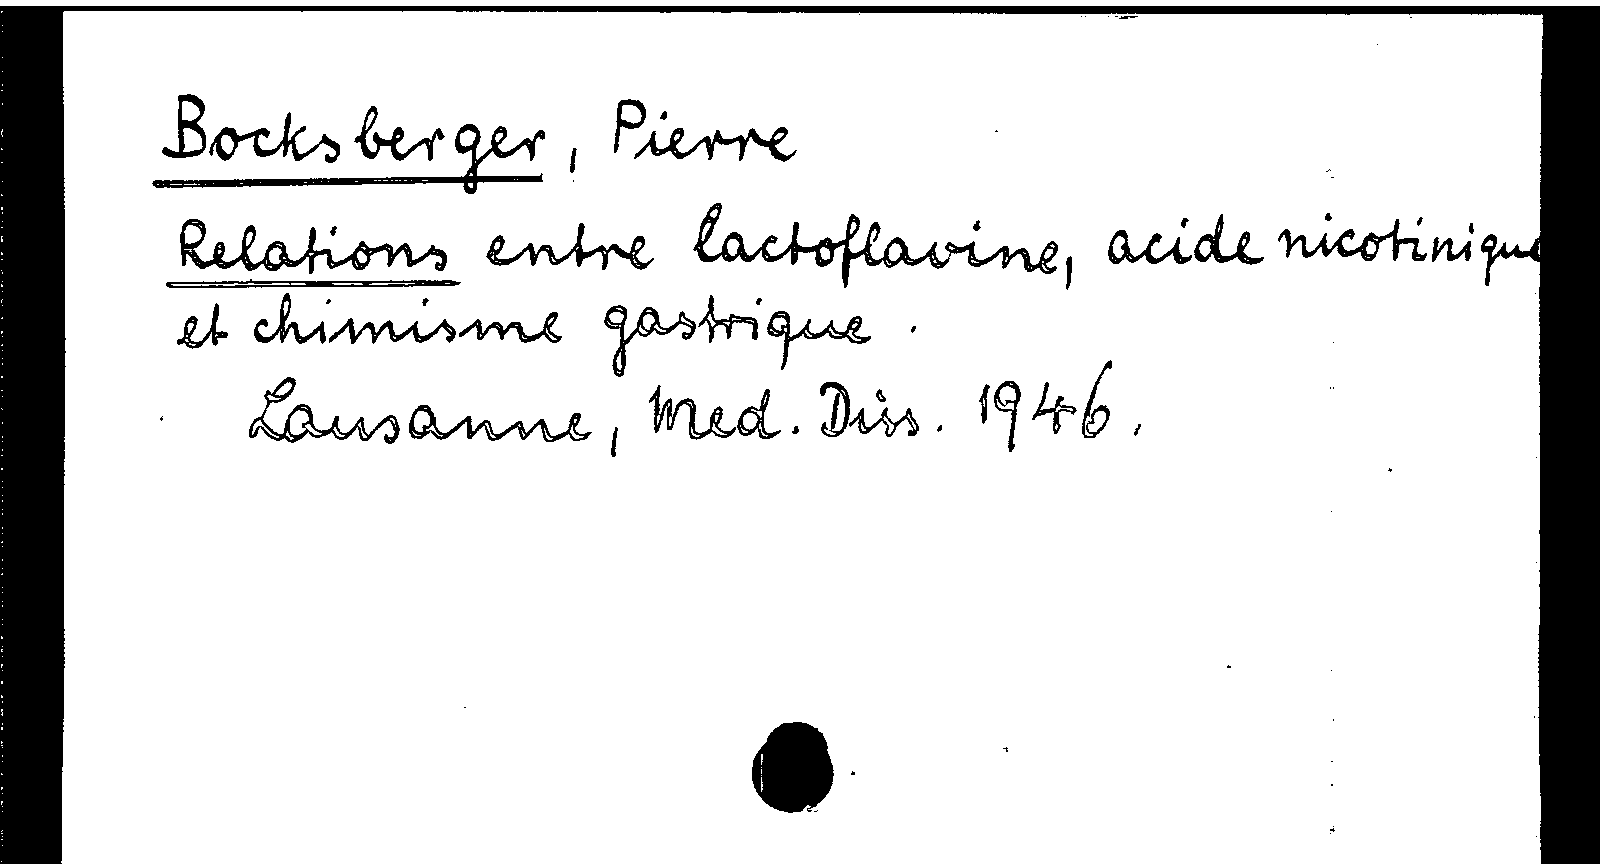 Bocksberger, Pierre
Relations entre lactoflavine, acide nicotinique
et chimisme gastrique.
Lausanne, Med. Diss. 1946.